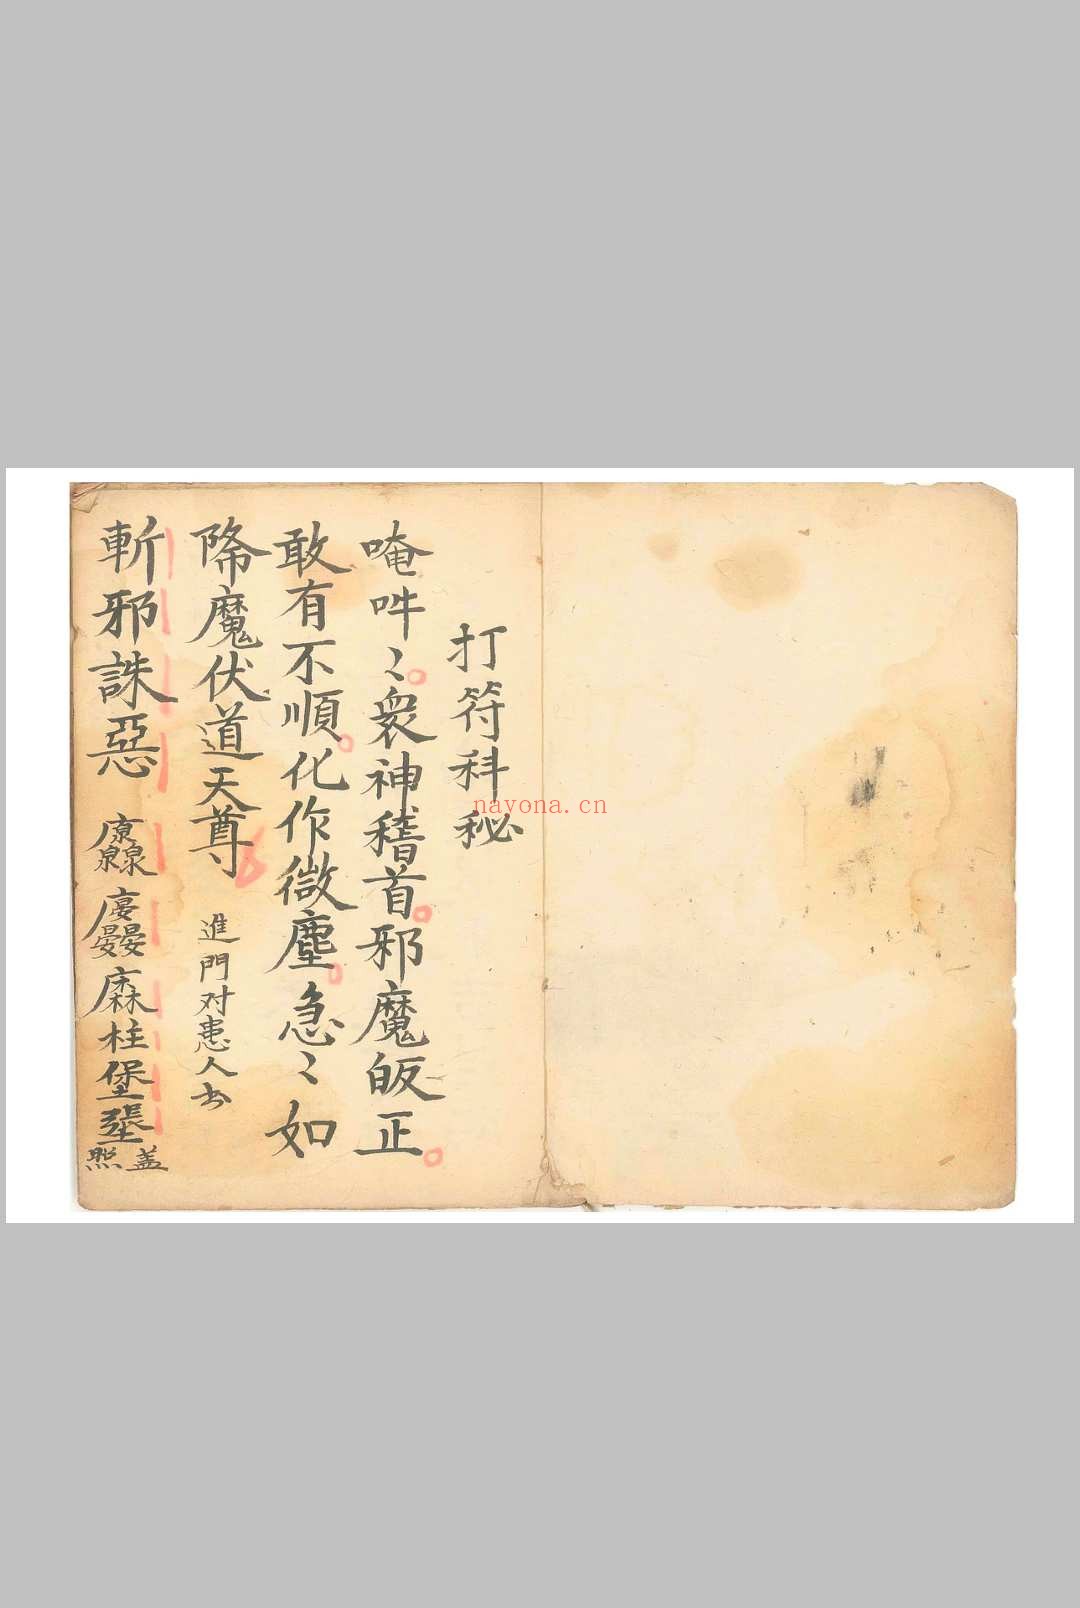 打符科秘
唵吽〻衆神稽首邪魔皈正
敢有不順化作微塵急〻如
降魔伏道天尊 進門对患人去
斬邪誅惡 柱堡 蓋照
nayona.cn